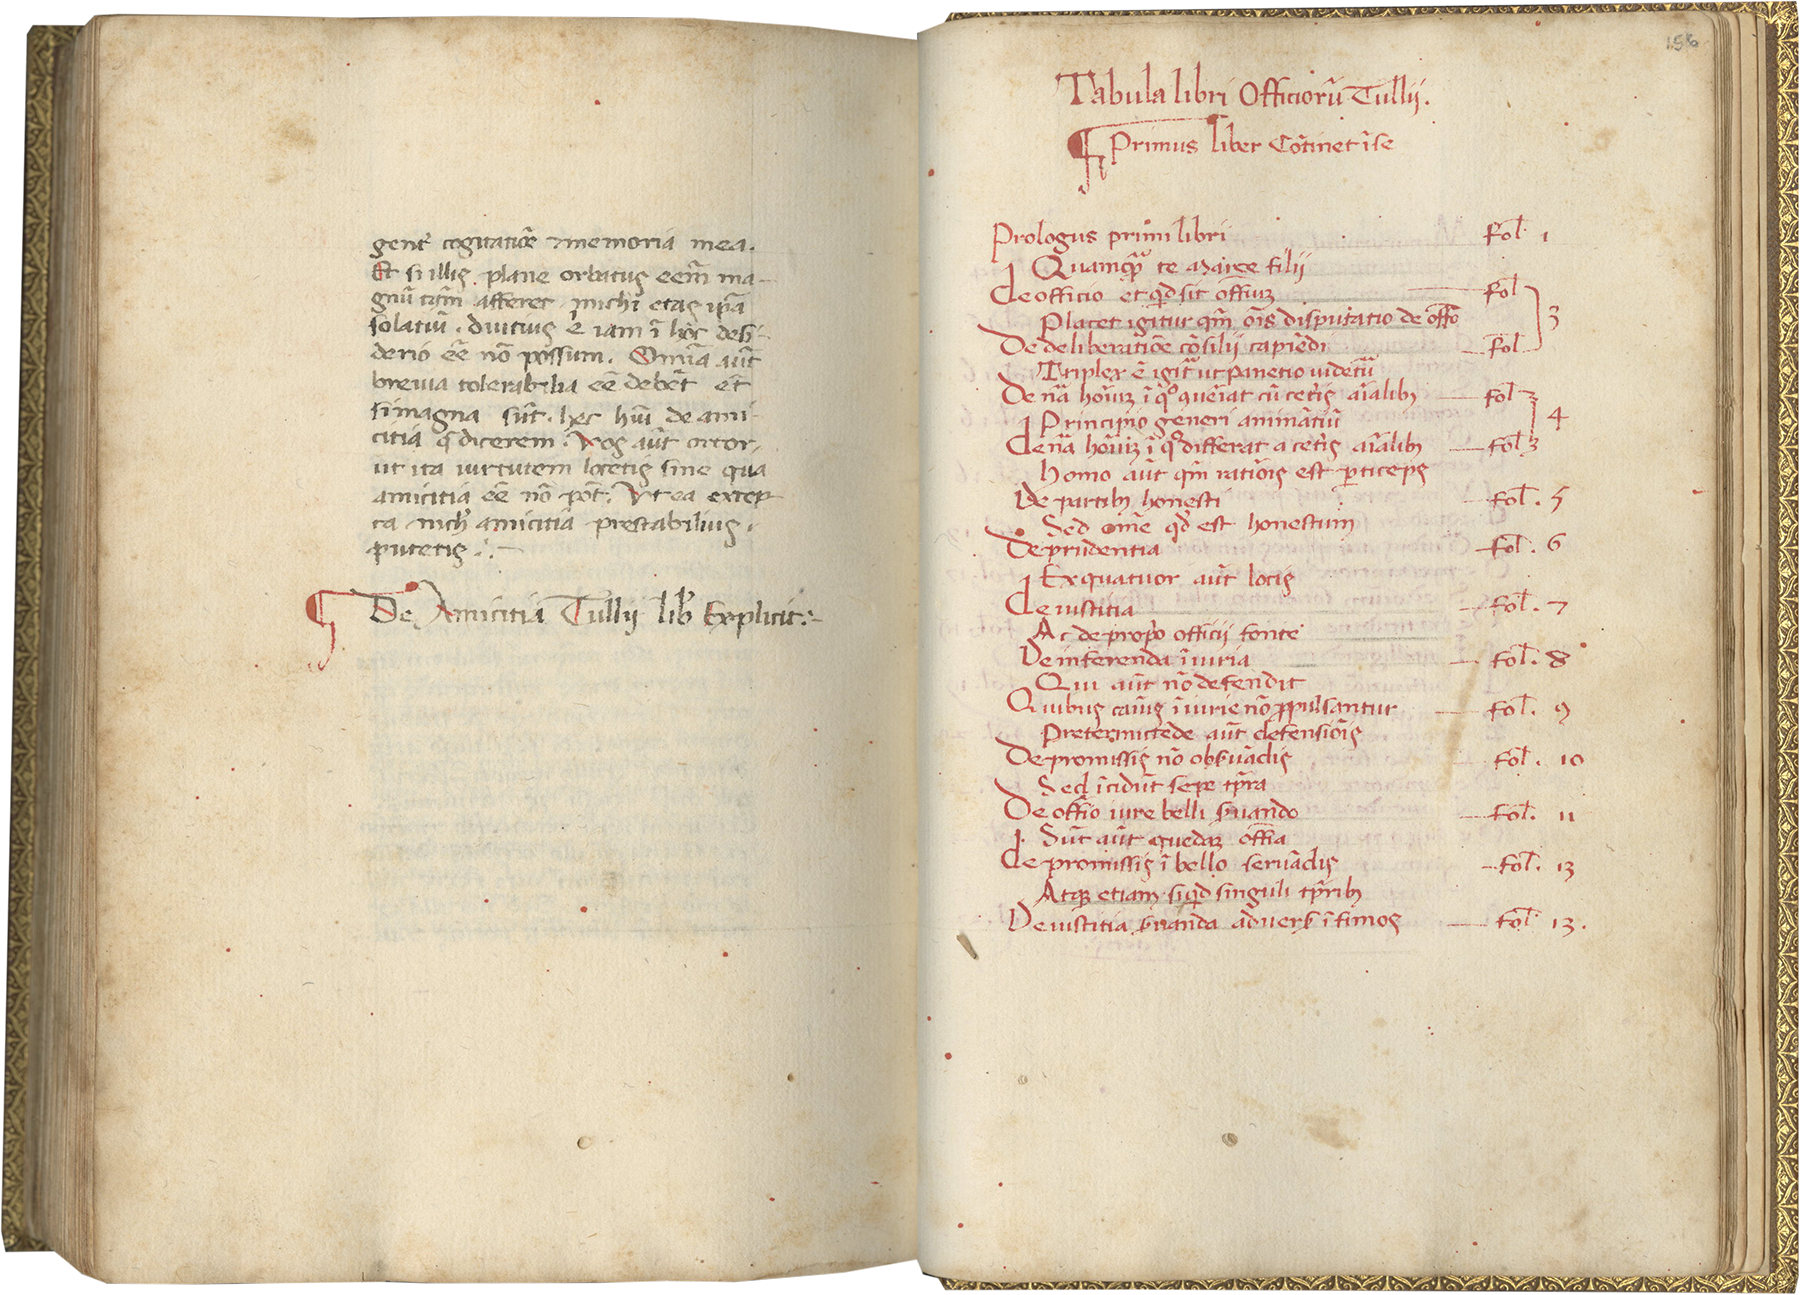 gent̉ cogitatiõe ⁊ memoria mea.
Et si illis plane orbatus eẽm ma-
gnũ tam̃ afferet michi etas ip̃a
solatiũ. Diutius ẽ iam ĩ hoc desi-
derio eẽ nõ possum. Omĩa aũt
brevia tolerabilia eẽ debẽt et
si magna sũt. hec hũi de ami-
citia q̃ dicerem. Vos aũt ortor,
ut ita virtutem locetis sine qua
amicitia eẽ nõ põt. Vt ea excep
ta nich̉ amicitia prestabilius
putetis.
De Amicitia Tullii lib̉ Explicit:-
156
Tabula libri Officiorũ Tullij.
Primus liber Cõtinet ĩ se
Prologus primi libri Fol. 1
Quamq̃ te Marce filij
De officio et q̃d sit offiuꝫ Fol
Placet igitur qm̃ oĩs disputatio de offõ 3
De deliberatiõe cõsilij capiẽdi Fol
Triplex ẽ igit̃ ut Panetio videt̃
De nã hoĩuꝫ ĩ q̊ cõueĩat cũ cetĩs aĩalibꝫ Fol
Principio generi animãtiũ 4
De nã hoĩuꝫ ĩ q̊ differat a cetĩs aĩalibꝫ Fol
Homo aũt qm̃ ratiõis est p̃ticeps
De partibꝫ honesti Fol. 5
Sed om̃e q̃d est honestum
De prudentia Fol. 6
Ex quatuor aũt locis
De iustitia Fol. 7
Ac de prop̃o officij fonte
De inferenda ĩiuria Fol. 8
Qui aũt nõ defendit
Quibus caũis ĩiurie nõ ꝓpulsantur Fol. 9
Pretermictẽde aũt defensiõis
De promissis nõ obs̃uãdis Fol. 10
Sed ĩcidũt sepe tp̃ra
De offĩo iure belli s̃uando Fol. 11
Sũt aũt quedaꝫ offĩa
De promissis ĩ bello seruãdis Fol. 13
Atqꝫ etiam siq̃d singuli tp̃ribꝫ
De iustitia s̃uanda advers̃ ĩfimos Fol 13.